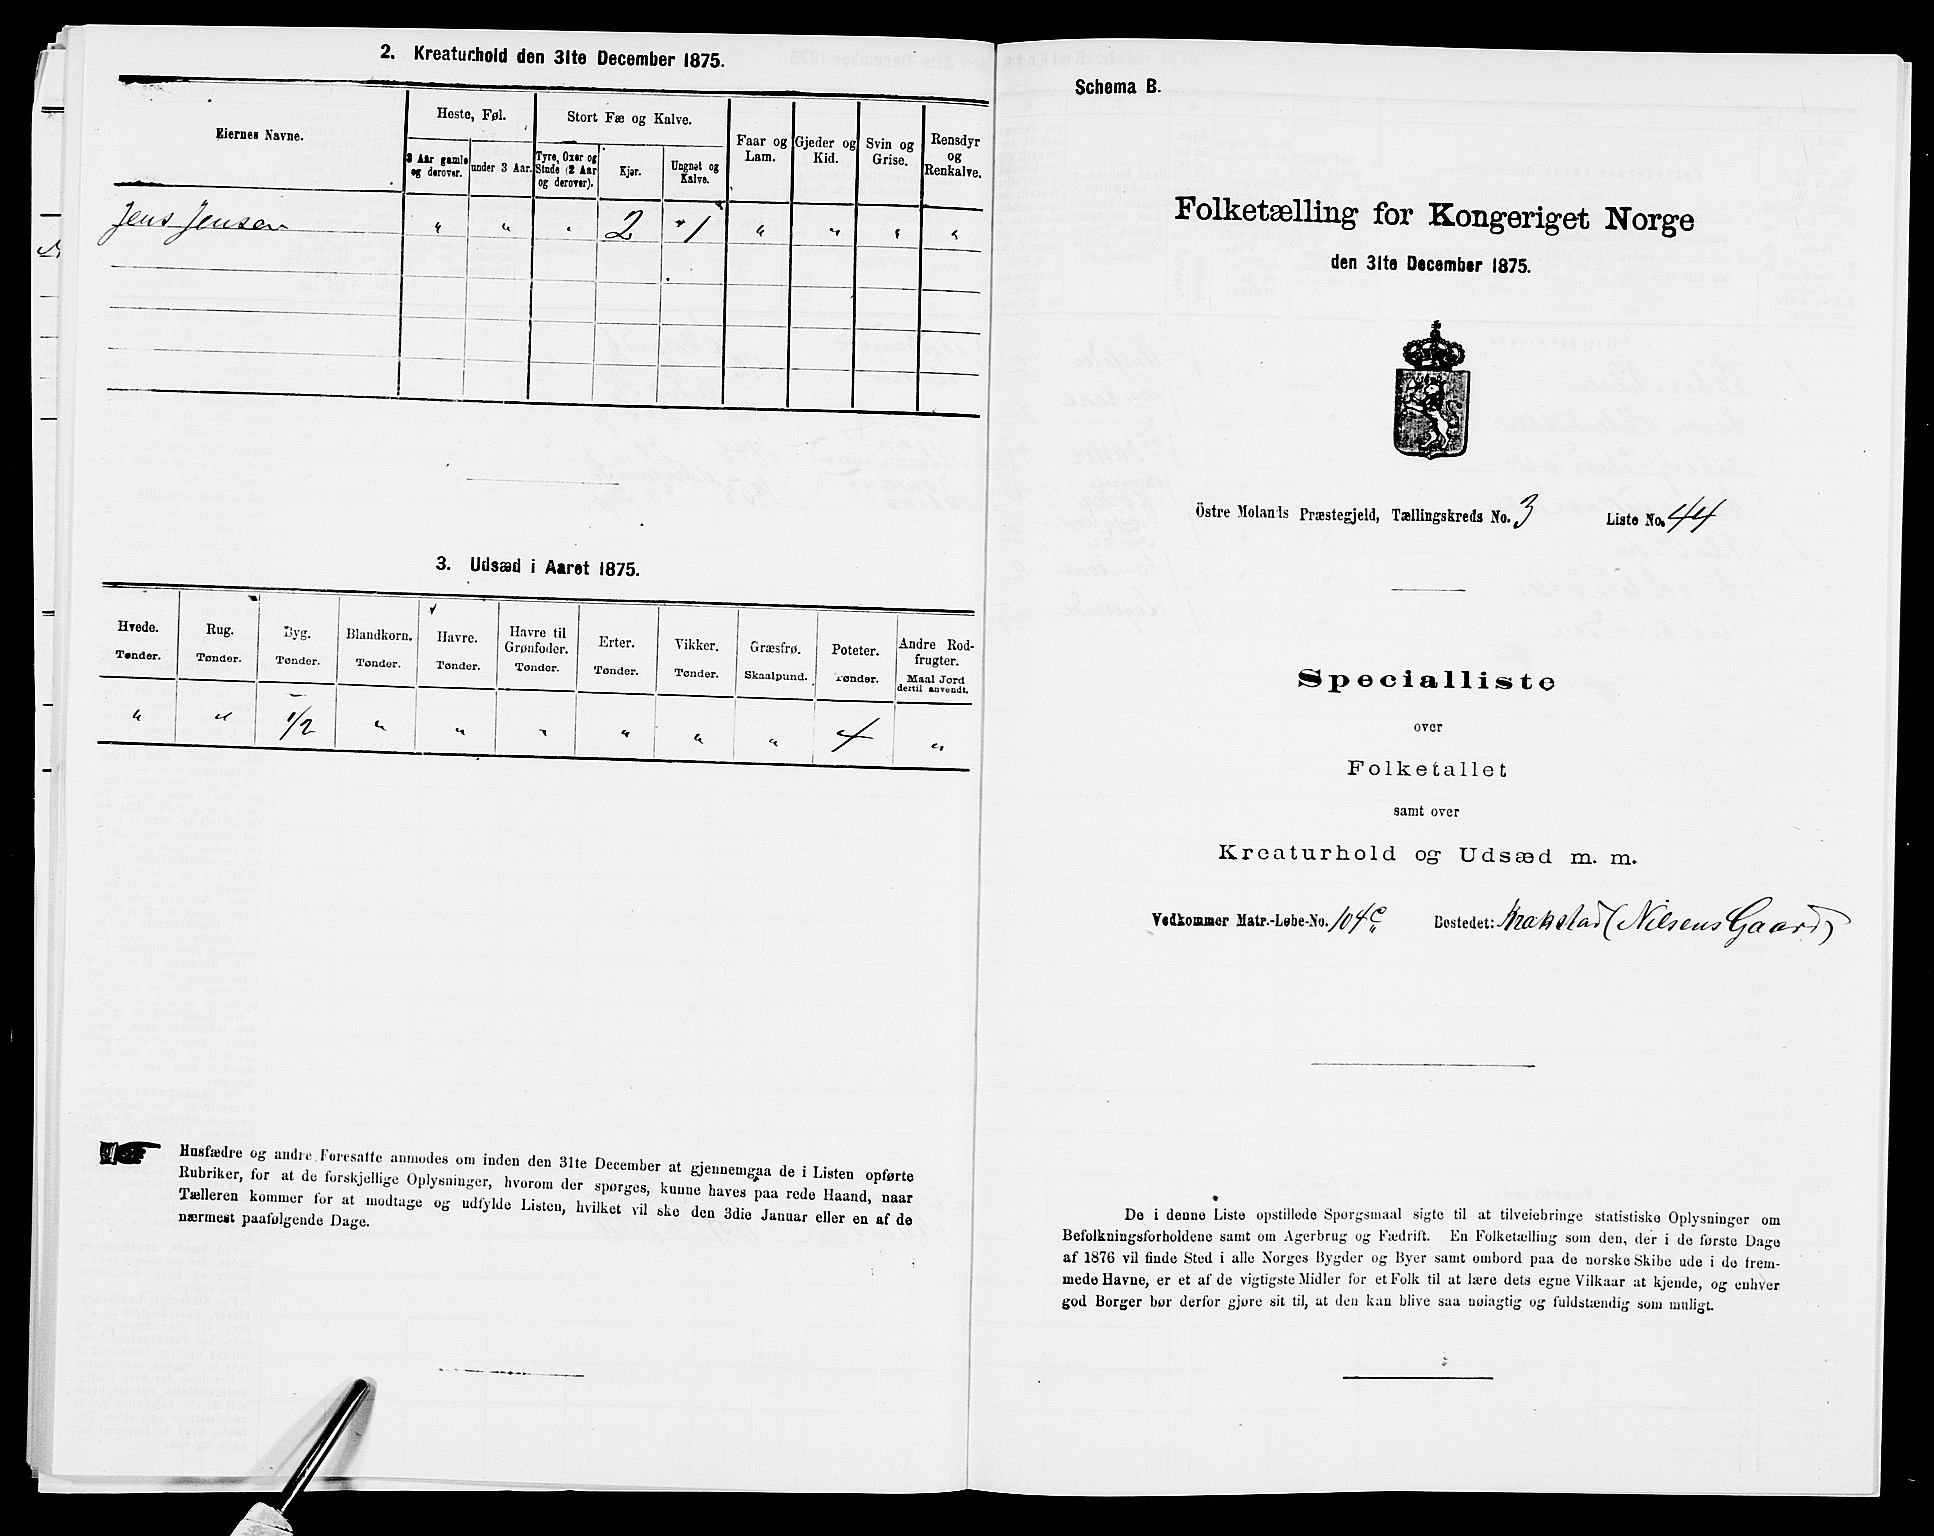 2. Kreaturhold den 31te December 1875.
Eiernes Navne.
Heste, Føl.
Stort Fæ og Kalve.
Faar og Lam.
Gjeder og Kid.
Svin og Grise.
Rensdyr og Renkalve.
3 Aar gamle og derover.
under 3 Aar.
Tyre, Oxer og Stude (2 Aar og derover).
Kjør.
Ungnøt og Kalve.
Jens Jensen " " " 2 " 1 " " " "
3. Udsæd i Aaret 1875.
Hvede. Rug. Byg. Blandkorn. Havre. Havre til Grønfoder. Erter. Vikker. Græsfrø. Poteter. Andre Rodfrugter.
Tønder. Tønder. Tønder. Tønder. Tønder. Tønder. Tønder. Tønder. Skaalpund. Tønder. Maal Jord dertil anvendt.
" " 1/2 " " " " " " 4 "
Husfædre og andre Foresatte anmodes om inden den 31te December at gjennemgaa de i Listen opførte
Rubriker, for at de forskjellige Oplysninger, hvorom der spørges, kunne haves paa rede Haand, naar
Tælleren kommer for at modtage og udfylde Listen, hvilket vil ske den 3die Januar eller en af de
nærmest paafølgende Dage.
Schema B.
Folketælling for Kongeriget Norge
den 31te December 1875.
Östre Molands Præstegjeld, Tællingskreds No. 3 Liste No. 44
Specialliste
over
Folketallet
samt over
Kreaturhold og Udsæd m. m.
Vedkommer Matr.-Løbe-No. 104c Bostedet: Krokstad (Nilsens Gaard)
De i denne Liste opstillede Spørgsmaal sigte til at tilveiebringe statistiske Oplysninger om
Befolkningsforholdene samt om Agerbrug og Fædrift. En Folketælling som den, der i de første Dage
af 1876 vil finde Sted i alle Norges Bygder og Byer samt ombord paa de norske Skibe ude i de frem-
mede Havne, er et af de vigtigste Midler for et Folk til at lære dets egne Vilkaar at kjende, og enhver
god Borger bør derfor gjøre sit til, at den kan blive saa nøiagtig og fuldstændig som muligt.